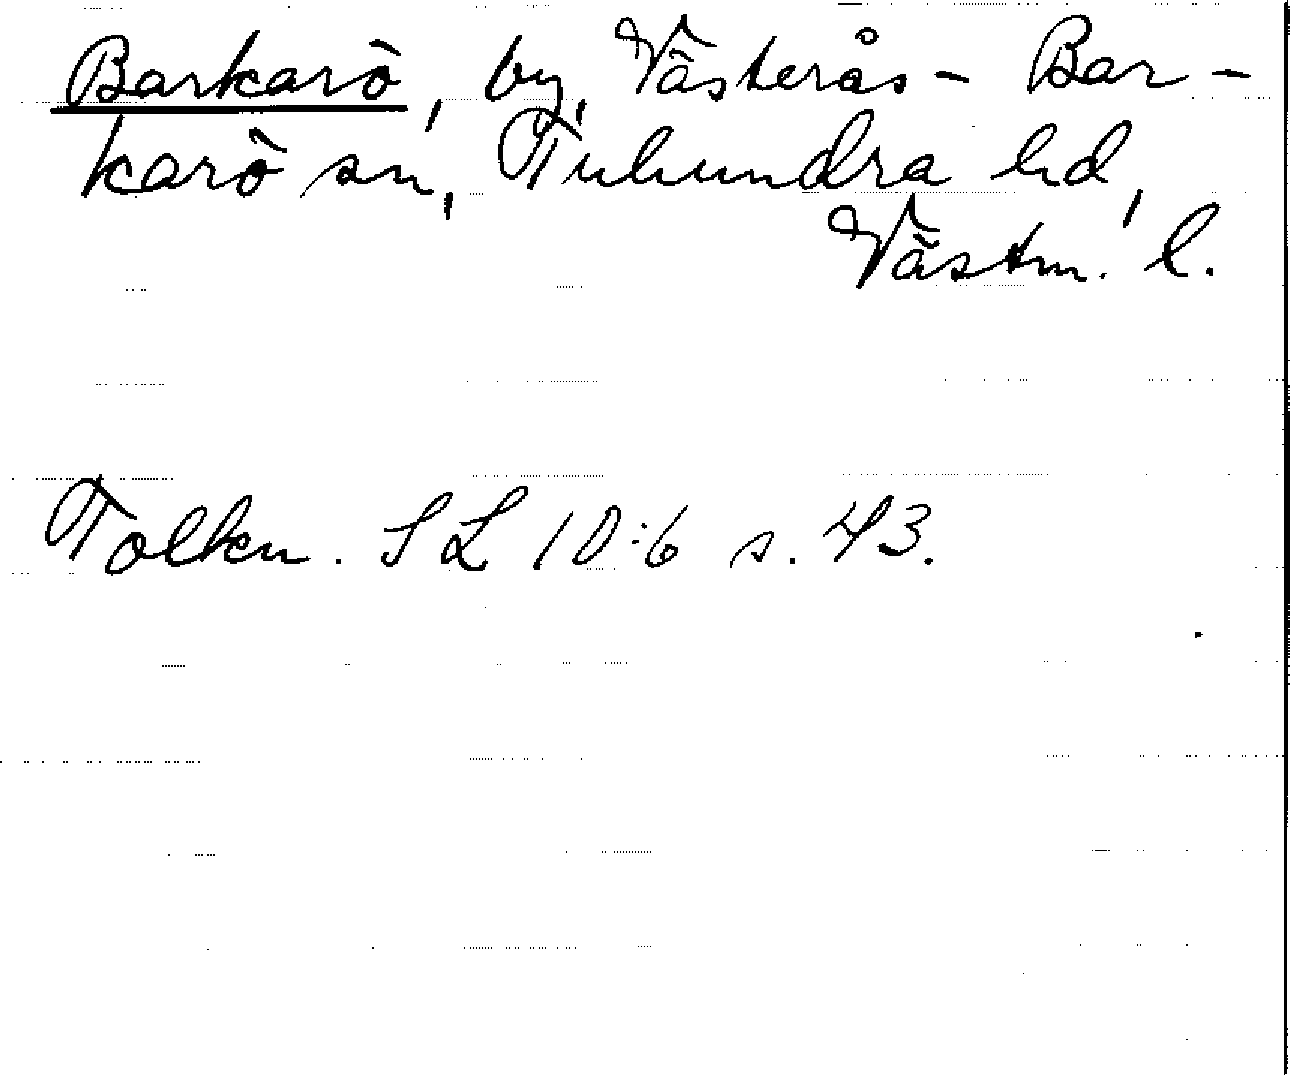 Barkarö, by, Västerås-Bar-
karö sn, Tuhundra hd,
Västm. l.
Tolkn. SL 10:6 s. 43.